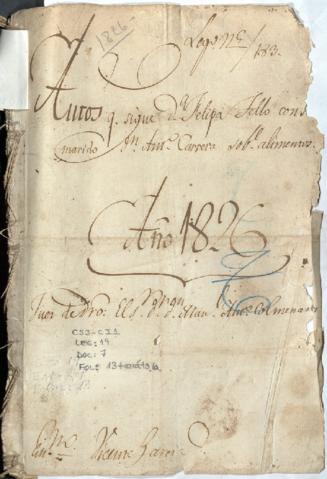 1826
Legº Nº
183.
Autos
q. sigue Dª Felipa Tello con s
marido Dn. Antº Carrera sobe. alimentos.
Año 1826
Juez de Dro. El Sr. Dr. Dn. Man. Antº Colmenares
CSJ-CI1
LEG: 19
DOC: 7
FOL: 13
Vicente Garcia